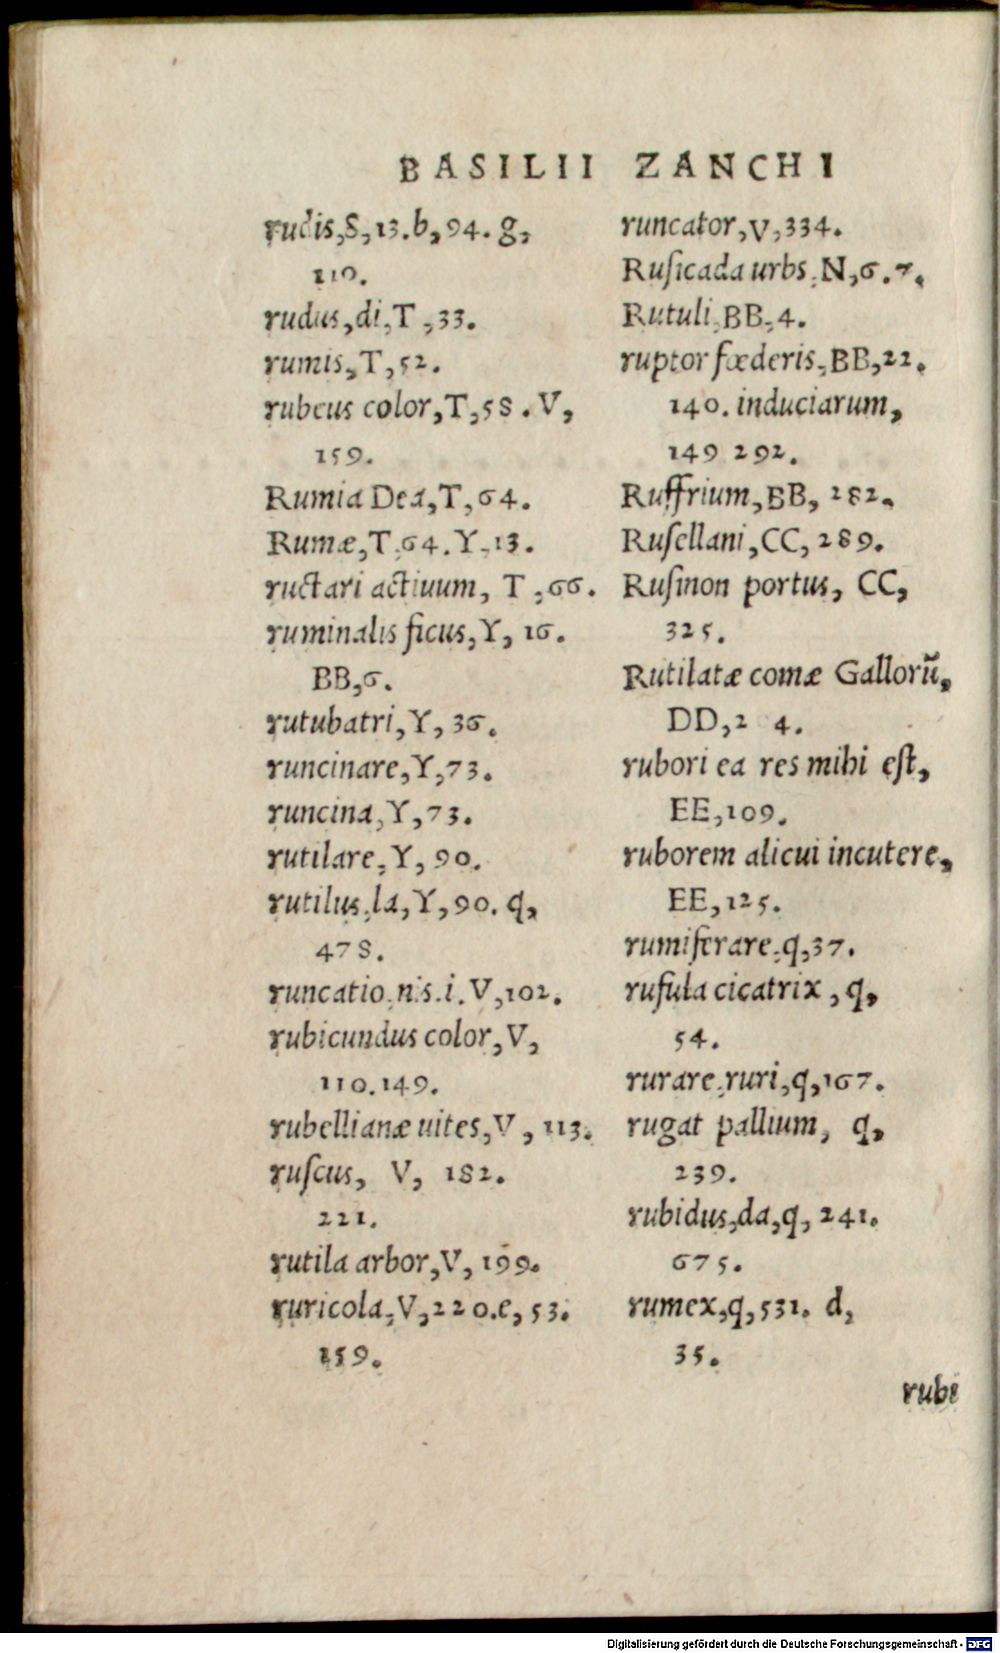 BASILII ZANCHI
rudis,S,13.b,94.g,
110.
rudus,di,T,33.
rumis,T,52.
rubeus color,T,58.V,
159.
Rumia Dea,T,64.
Rumæ,T,64.Y,13.
ructari actiuum, T,66.
ruminalis ficus,Y, 16.
BB,6.
rutubatri,Y, 36.
runcinare,Y,73.
runcina,Y,73.
rutilare,Y, 90.
rutilus,la,Y,90. q,
478.
runcatio.nis.i.V,102.
rubicundus color,V,
110.149.
rubellianæ uites,V, 113.
ruscus, V, 182.
221.
rutila arbor,V, 199.
ruricola,V,220.e, 53.
159.
runcator,V,334.
Rusicada urbs,N,6.7.
Rutuli,BB,4.
ruptor fœderis,BB,22.
140. induciarum,
149 292.
Ruffrium,BB, 282.
Rusellani,CC, 289.
Rusinon portus, CC,
325.
Rutilatæ comæ Gallorũ,
DD,2 4.
rubori ea res mihi est,
EE,109.
ruborem alicui incutere,
EE,125.
rumiferare,q,37.
rufula cicatrix, q,
54.
rurare,ruri,q,167.
rugat pallium, q,
239.
rubidus,da,q, 241.
675.
rumex,q,531. d,
35.
rubi
Digitalisierung gefördert durch die Deutsche Forschungsgemeinschaft - DFG